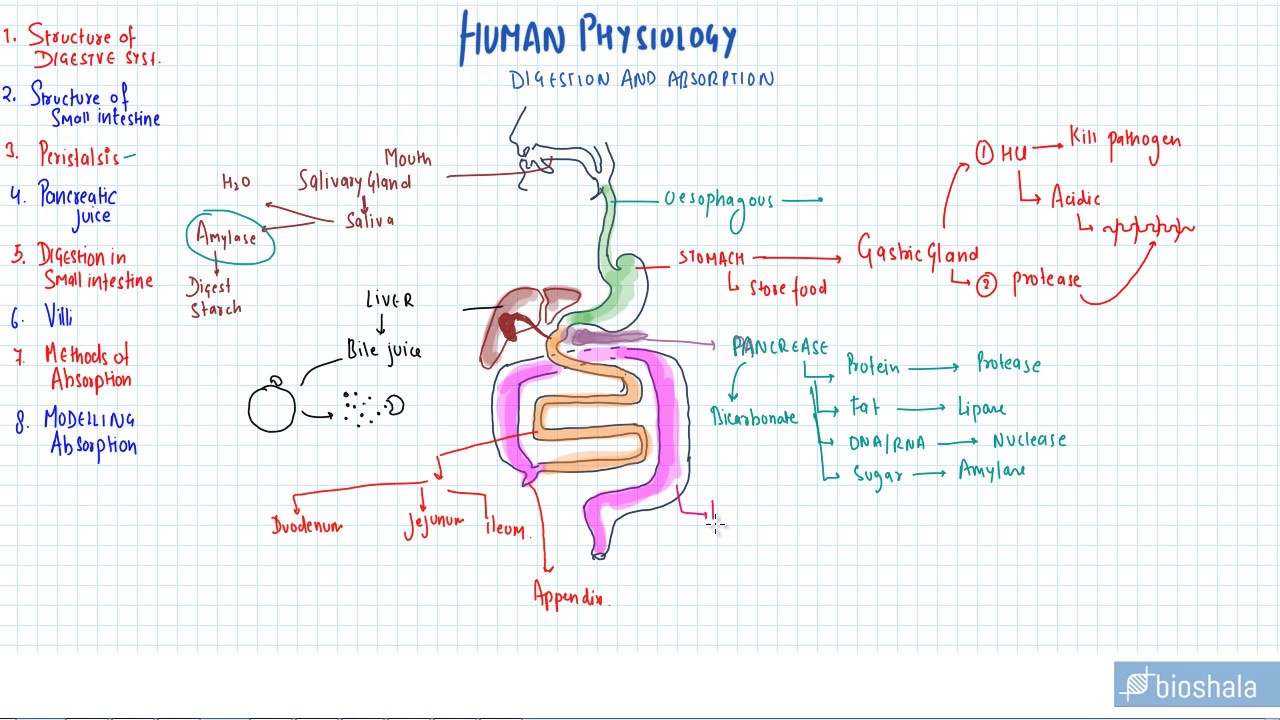 HUMAN PHYSIOLOGY
DIGESTION AND ABSORPTION
1. Structure of
DIGESTVE SYST.
2. Structure of
Small intestine
3. Peristalsis
4. Pancreatic
Juice
5. DIGESTION in
Small intestine
6. Villi
7. Methods of
Absorption
8. MODELLING
Absorption
Mouth
Salivary Gland
Saliva
H2O
Amylase
Digest
Starch
LIVER
Bile juice
Duodenum
Jejunum
ileum.
Appendix.
Oesophagous
STOMACH
Store food
Gastric Gland
① HCl
Kill pathogen
Acidic
② protease
PANCREASE
Bicarbonate
Protein
Protease
Fat
Lipase
DNA/RNA
Nuclease
Sugar
Amylase
bioshala